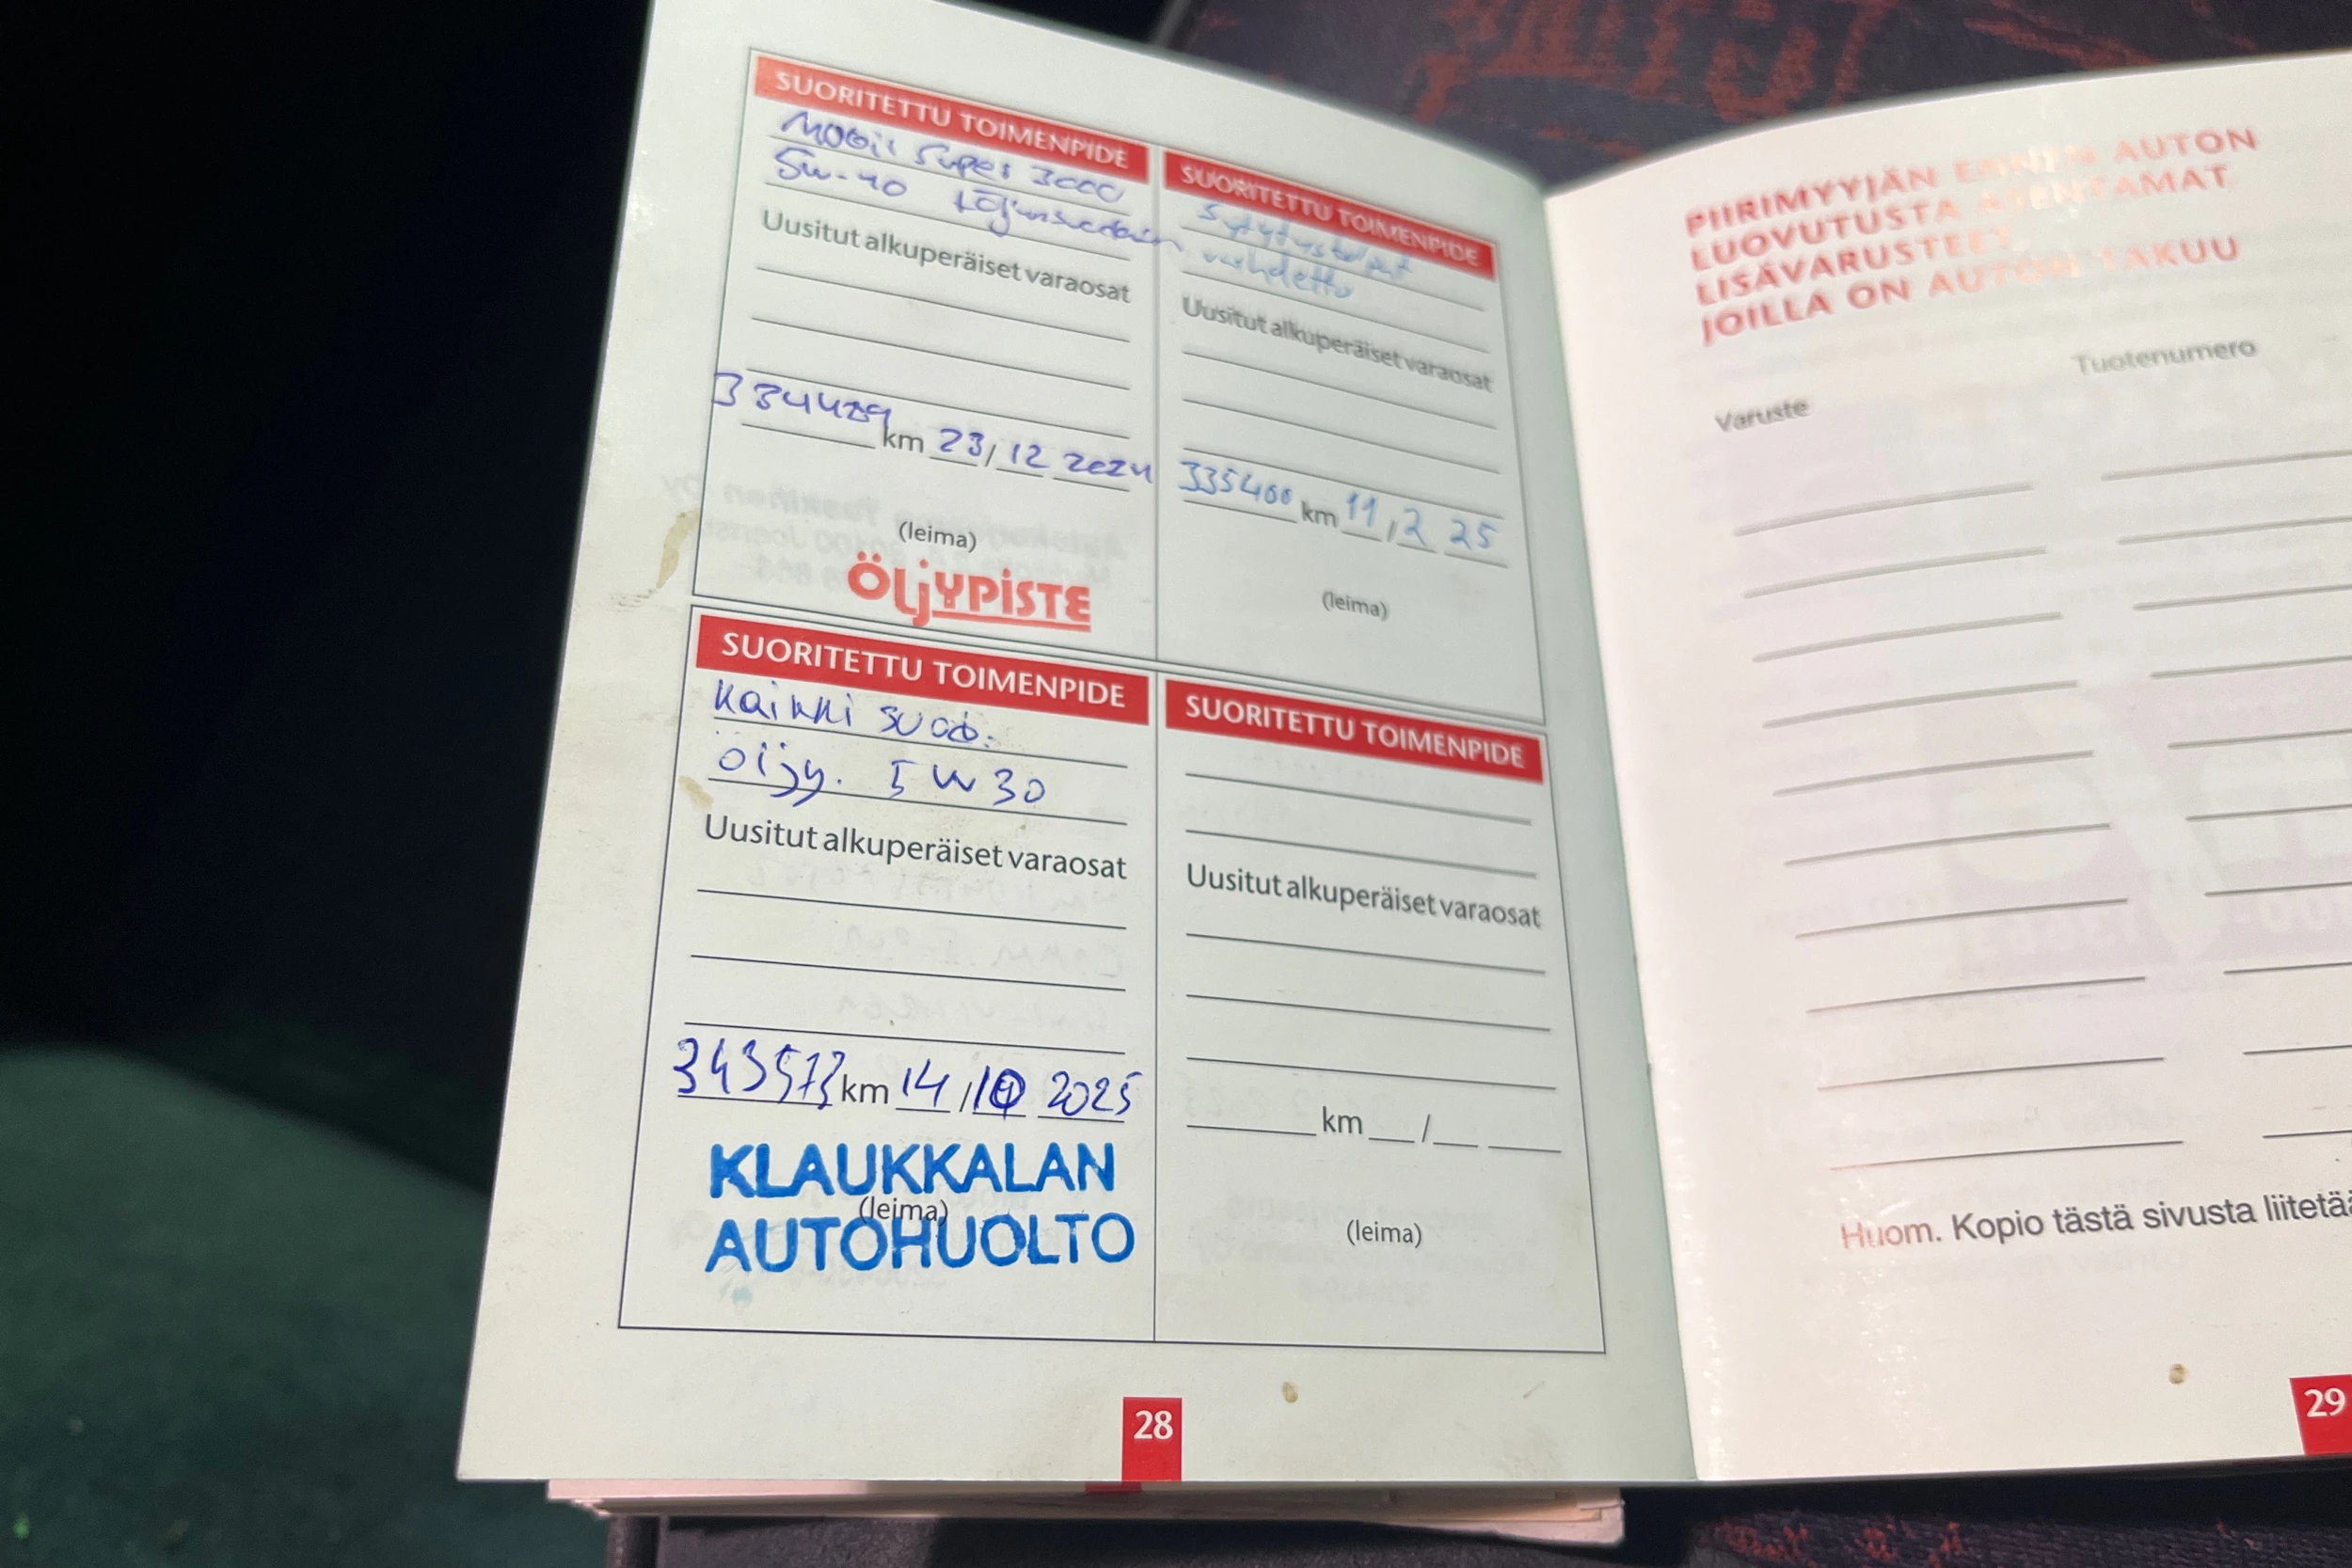 SUORITETTU TOIMENPIDE
Mobil Super 3000
5w-40
Uusitut alkuperäiset varaosat
km 23/12 2024
(leima)
ÖLJYPISTE
SUORITETTU TOIMENPIDE
Sytytystulpat
vaihdettu
Uusitut alkuperäiset varaosat
335400 km 11/2 25
(leima)
SUORITETTU TOIMENPIDE
Kaikki suod.
öljy. 5W30
Uusitut alkuperäiset varaosat
343573 km 14/10 2025
KLAUKKALAN
(leima)
AUTOHUOLTO
SUORITETTU TOIMENPIDE
Uusitut alkuperäiset varaosat
km /
(leima)
28
PIIRIMYYJÄN ENNEN AUTON
LUOVUTUSTA ASENTAMAT
LISÄVARUSTEET
JOILLA ON AUTON TAKUU
Varuste Tuotenumero
Huom. Kopio tästä sivusta
29